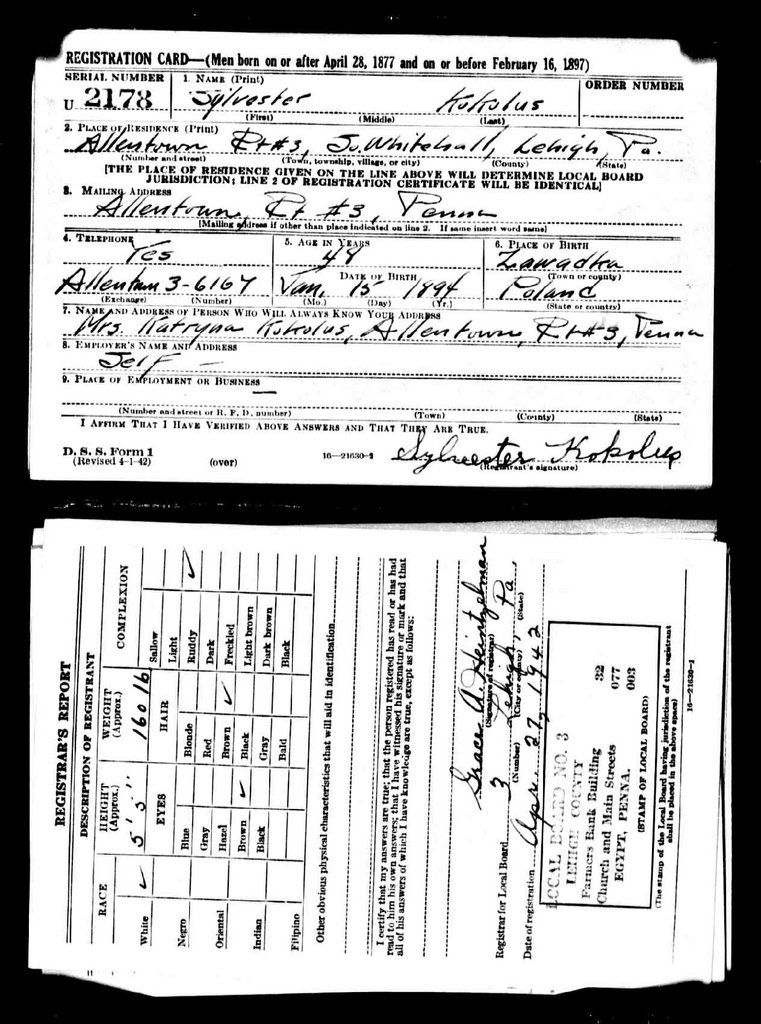 REGISTRATION CARD—(Men born on or after April 28, 1877 and on or before February 16, 1897)
SERIAL NUMBER 1. NAME (Print) ORDER NUMBER
U 2178 Sylvester Kokolus
(First) (Middle) (Last)
2. PLACE OF RESIDENCE (Print)
Allentown Rt #3, So. Whitehall, Lehigh, Pa.
(Number and street) (Town, township, village, or city) (County) (State)
[THE PLACE OF RESIDENCE GIVEN ON THE LINE ABOVE WILL DETERMINE LOCAL BOARD
JURISDICTION; LINE 2 OF REGISTRATION CERTIFICATE WILL BE IDENTICAL]
3. MAILING ADDRESS
Allentown, Rt #3, Penna
[Mailing address if other than place indicated on line 2. If same insert word same]
4. TELEPHONE 5. AGE IN YEARS 6. PLACE OF BIRTH
Yes 48 Zawadka
DATE OF BIRTH (Town or county)
Allentown 3-6167 Jan. 15 1894 Poland
(Exchange) (Number) (Mo.) (Day) (Yr.) (State or country)
7. NAME AND ADDRESS OF PERSON WHO WILL ALWAYS KNOW YOUR ADDRESS
Mrs. Katryna Kokolus, Allentown, Rt #3, Penna
8. EMPLOYER'S NAME AND ADDRESS
Self —
9. PLACE OF EMPLOYMENT OR BUSINESS
—
(Number and street or R. F. D. number) (Town) (County) (State)
I AFFIRM THAT I HAVE VERIFIED ABOVE ANSWERS AND THAT THEY ARE TRUE.
D. S. S. Form 1
(Revised 4-1-42) (over) 16—21630-2 Sylvester Kokolus
(Registrant's signature)
REGISTRAR'S REPORT
DESCRIPTION OF REGISTRANT
RACE HEIGHT (Approx.) WEIGHT (Approx.) COMPLEXION
White ✓ 5' 5" 160 lb
EYES HAIR
Sallow
Light
Negro Blue Blonde Ruddy ✓
Gray Red Dark
Oriental Hazel Brown ✓ Freckled
Brown ✓ Black Light brown
Indian Black Gray Dark brown
Bald Black
Filipino
Other obvious physical characteristics that will aid in identification
I certify that my answers are true; that the person registered has read or has had
read to him his own answers; that I have witnessed his signature or mark and that
all of his answers of which I have knowledge are true, except as follows:
Grace A. Heintzelman
(Signature of registrar)
Registrar for Local Board 3 Lehigh, Pa.
(Number) (City or county) (State)
Date of registration Apr. 27, 1942
LOCAL BOARD NO. 3
LEHIGH COUNTY 32
Farmers Bank Building 077
Church and Main Streets 003
EGYPT, PENNA.
(STAMP OF LOCAL BOARD)
(The stamp of the Local Board having jurisdiction of the registrant
shall be placed in the above space)
16—21630-1